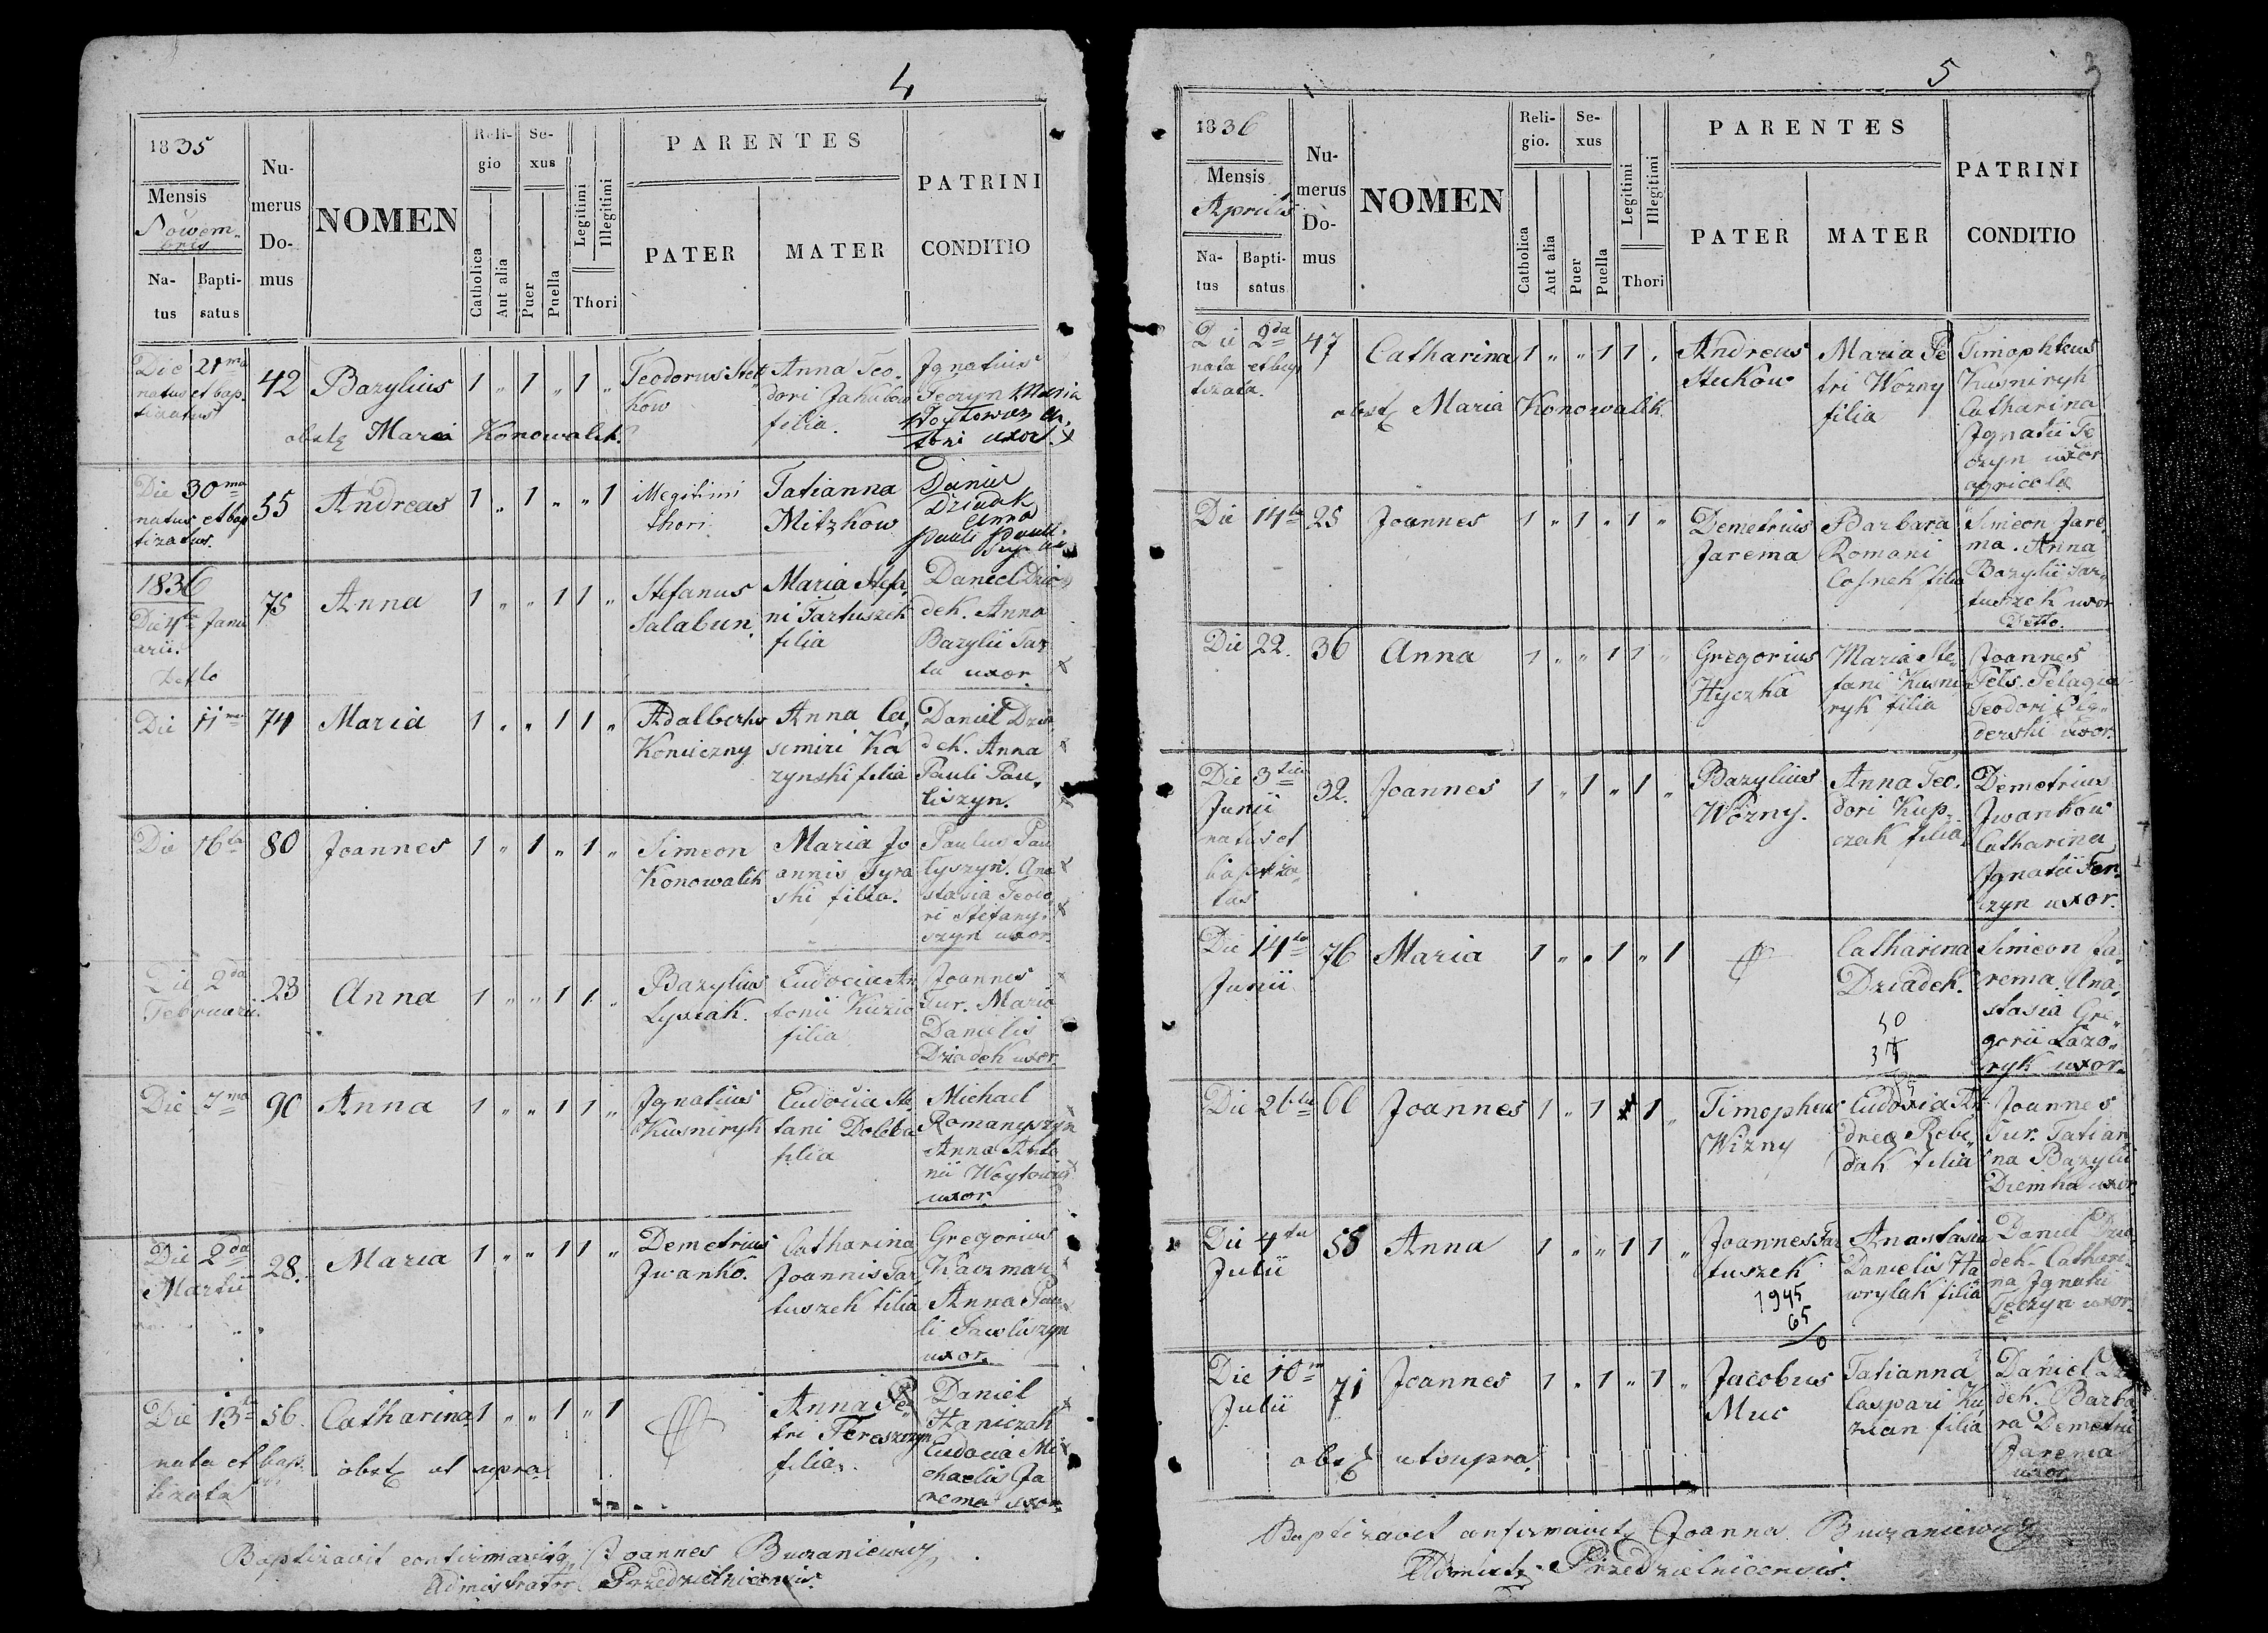 4
1835
Mensis
Nowem-
bris
Na-
tus
Bapti-
satus
Nu-
merus
Do-
mus
NOMEN
Reli-
gio
Catholica
Aut alia
Se-
xus
Puer
Puella
Legitimi
Illegitimi
Thori
PARENTES
PATER
MATER
PATRINI
CONDITIO
Die 21ma
natus et bap
tizatus
42
Bazylius
1 " 1 " 1 "
Teodorus
kow
Anna Teo-
dori Jakubow
filia.
Ignatius
Teczyn Maria
Woytowicz An
toni uxor
obstę Maria Konowalik.
Die 30ma
natus et bap
tizatus.
55
Andreas
1 " 1 " " 1
illegitimi
thori
Tatianna
Mitzkow
Daniel
Dziadek
Anna
Pauli
1836
Die 4ta Janu
arii.
detto
75
Anna
1 " " 1 1 "
Stefanus
Salabun.
Maria Stefa
ni Tartuszek
filia
Daniel Dzia
dek. Anna
Bazylii Tar
tu uxor.
Die 11ma
74
Maria
1 " " 1 1 "
Adalbertus
Konieczny
Anna Ca
simiri Ka
zynski filia
Daniel Dzia
dek. Anna
Pauli Pau
liszyn.
Die 16ta
80
Joannes
1 " 1 " 1 "
Simeon
Konowalik
Maria Jo
annis Tyra
ski filia.
Paulus Pau
lyszyn. Ana
stasia Teodo
ri Stefany
szyn uxor.
Die 2da
Februarii.
23
Anna
1 " " 1 1 "
Bazylius
Lysiak.
Eudocia An
tonii Kuzio
filia
Joannes
Tur. Maria
Danielis
Dziadek uxor.
Die 7ma
90
Anna
1 " " 1 1 "
Ignatius
Kusniryk
Eudocia Ste
fani Doleba
filia
Michael
Romanyszyn
Anna Anto
nii Woytowicz
uxor.
Die 2da
Martii
28.
Maria
1 " " 1 1 "
Demetrius
Iwanko.
Catharina
Joannis Tar
tuszek filia
Gregorius
Kaczmar
Anna Pau
li Pawliszyn
uxor.
Die 13ta
nata et bap.
tizata
56.
Catharina
1 " " 1 " 1
Anna Pe
tri Tereszczyn
filia.
Daniel
Haniczak
Eudocia Mi
chaelis Ja
rema uxor.
obstę ut supra
Baptizavit confirmavitq Joannes Buczaniewicz
Administrator Przedzielnicensis.
5
3
1836
Mensis
Aprilis
Na-
tus
Bapti-
satus
Nu-
merus
Do-
mus
NOMEN
Reli-
gio.
Catholica
Aut alia
Se-
xus
Puer
Puella
Legitimi
Illegitimi
Thori
PARENTES
PATER
MATER
PATRINI
CONDITIO
Die 2da
nata et bap
tizata.
47
Catharina
1 " " 1 1 "
Andreas
Steckow
Maria Pe
tri Wozny
filia
Timophteus
Kusniryk
Catharina
Ignatii Te
czyn uxor
agricola
obstę Maria Konowalik.
Die 14ta
25
Joannes
1 " 1 " 1 "
Demetrius
Jarema
Barbara
Romani
Cosnek filia
Simeon Jare
ma. Anna
Bazylii Tar
tuszek uxor
Detto.
Die 22.
36
Anna
1 " " 1 1 "
Gregorius
Hyczka
Maria Ste
fani Kusni
ryk filia
Joannes
Pets. Pelagia
Teodori
derski uxor.
Die 3tia
Junii
natus et
baptiza
tus
32.
Joannes
1 " 1 " 1 "
Bazylius
Wozny.
Anna Teo.
dori Kup
czak filia
Demetrius
Iwankow
Catharina
Ignatii Ten
czyn uxor.
Die 14ta
Junii
76
Maria
1 " " 1 " 1
Catharina
Dziadek.
Simeon Ja
rema Ana
stasia Gre
gorii Lazo
ryk uxor.
Die 26ta
66
Joannes
1 " 1 " 1 "
Timopheus
Wizny
Eudoxia An
drea Rebi
dak filia
Joannes
Tur. Tatian
na Bazylii
Diemka uxor
Die 4ta
Julii
58
Anna
1 " " 1 1 "
Joannes Tar
tuszek
1945
65
Anastasia
Danielis Ha
wrylak filia
Daniel Dzia
dek. Cathari
na Ignatii
Teczyn uxor.
Die 10ma
Julii
71
Joannes
1 " 1 " 1 "
Jacobus
Muc
Tatianna
Caspari Ku
zian filia
Daniel
dek. Barba
ra Demetrii
Jarema
uxor
obstę ut supra.
Baptizavit Joannes Buczaniewicz
Przedzielnicensis.